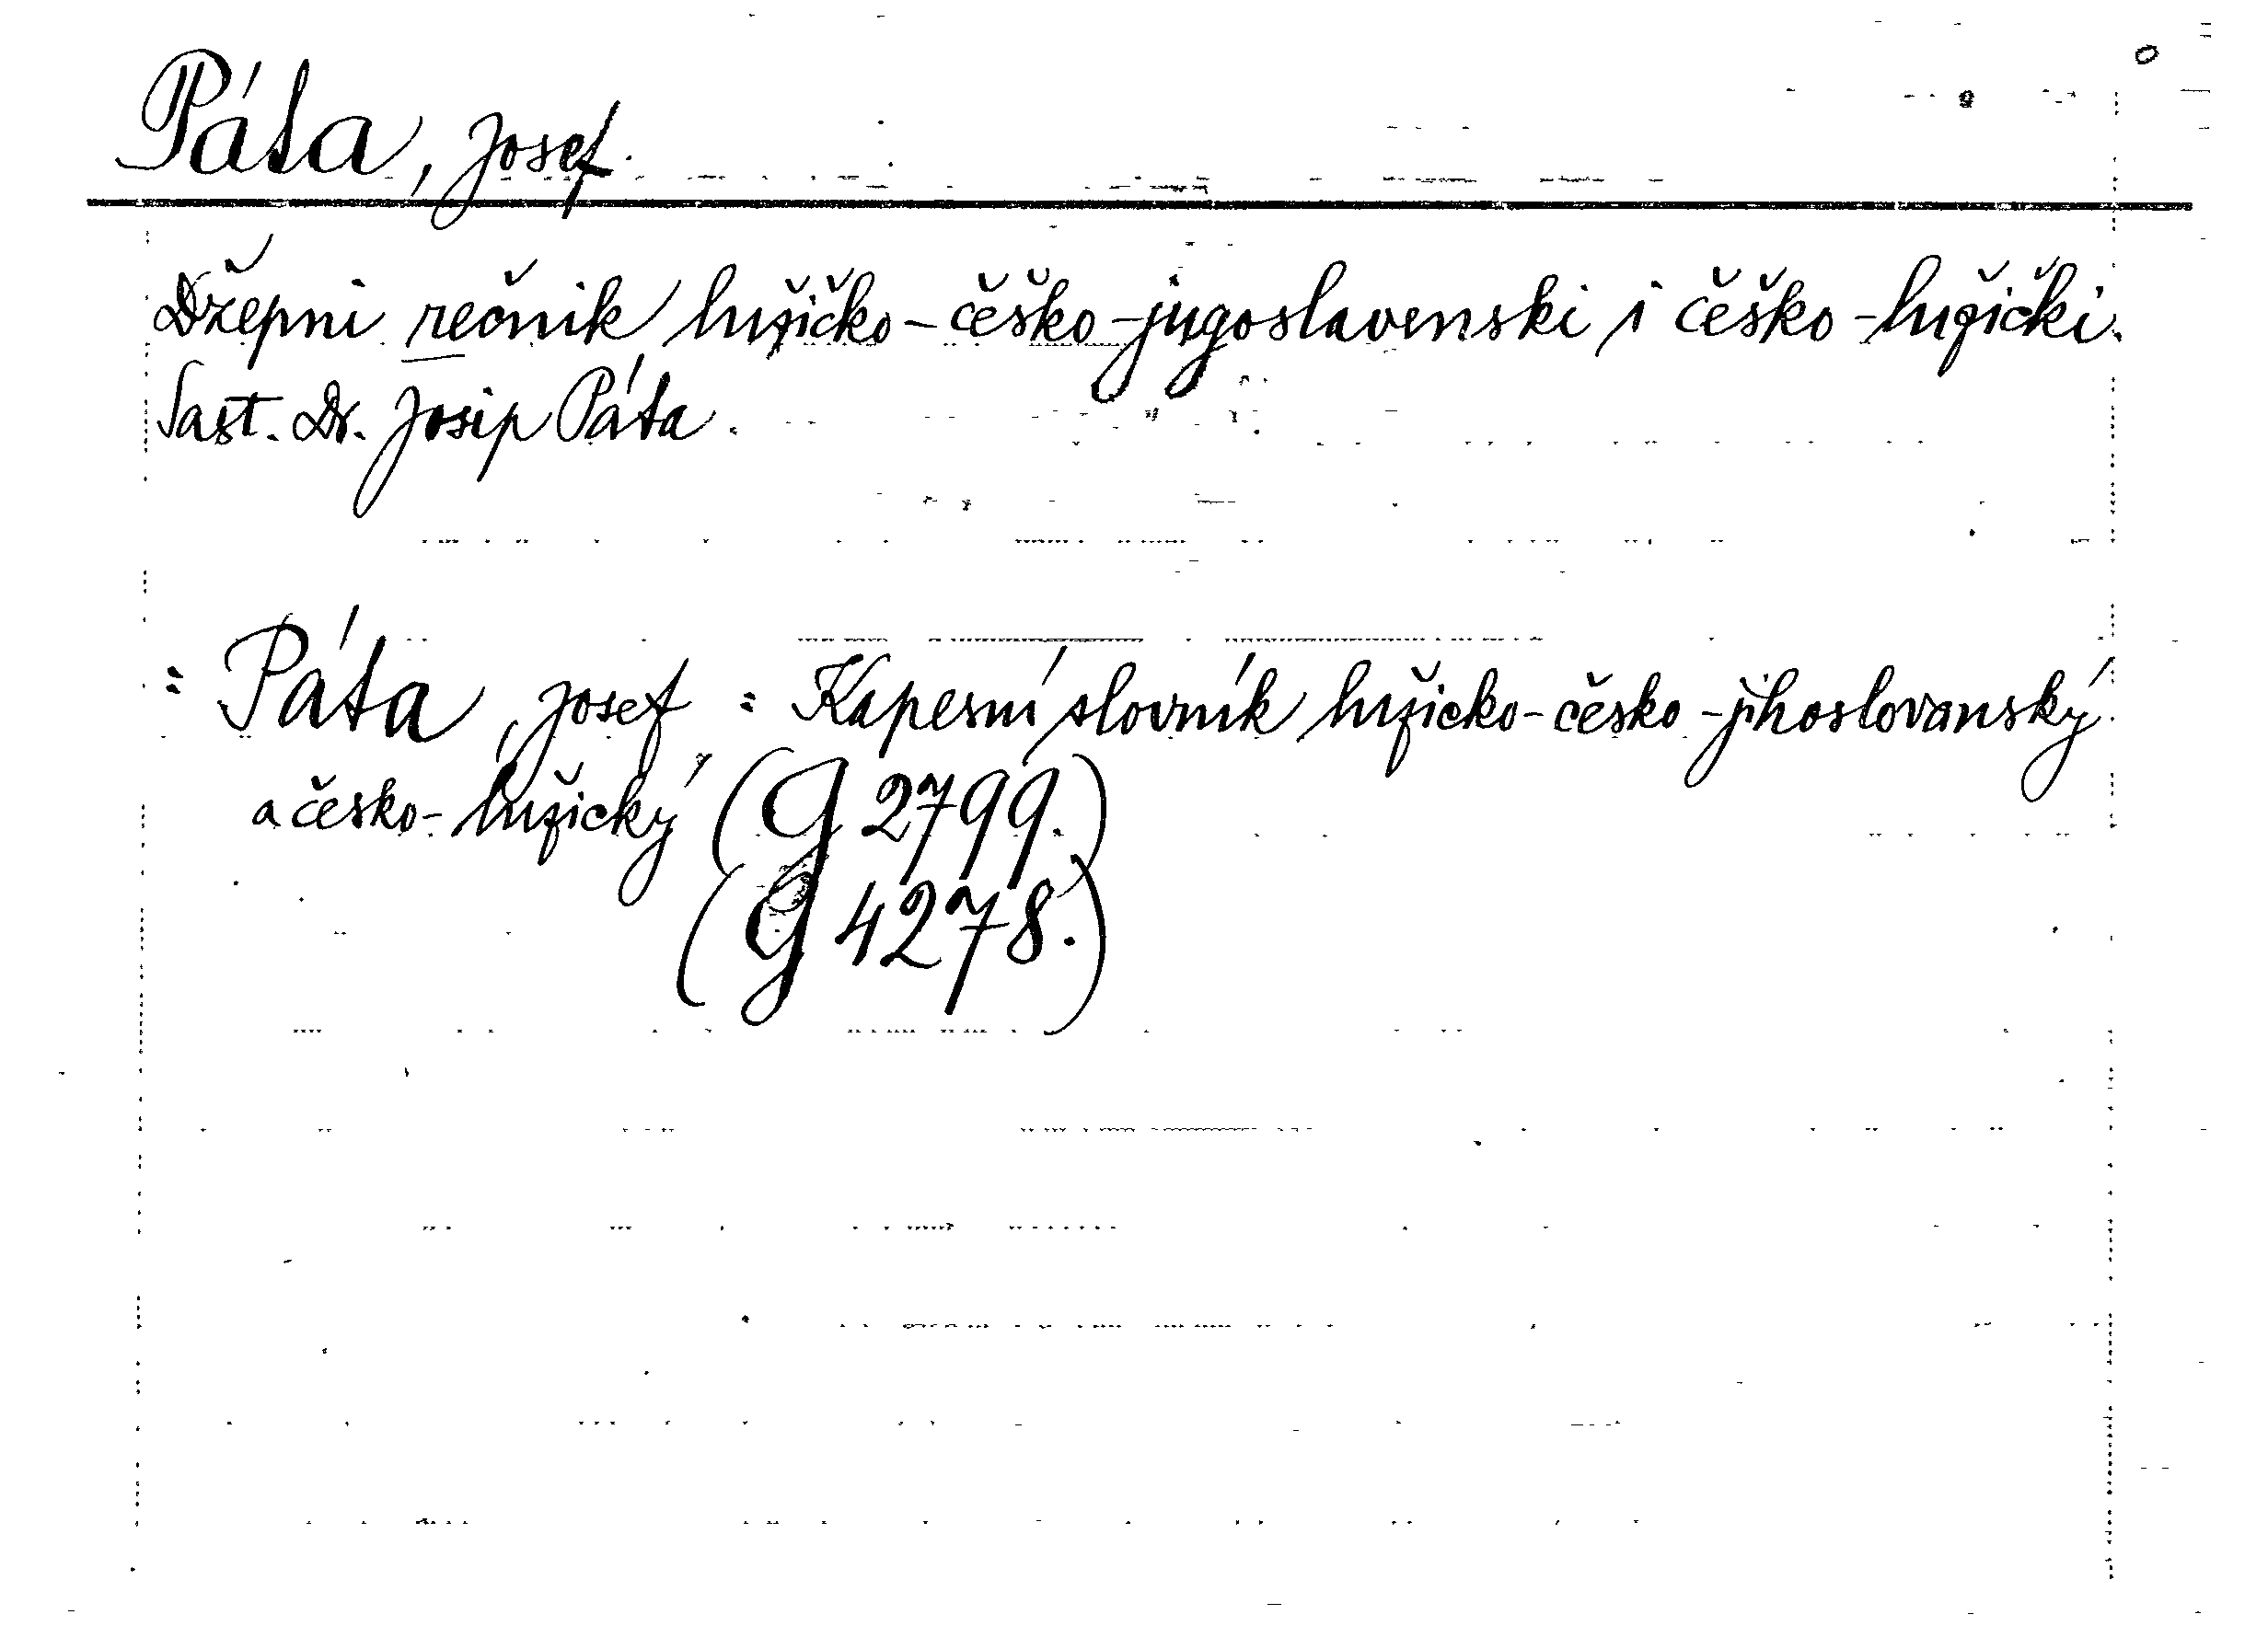 Páta, Josef.
Džepni rečnik lužičko-češko-jugoslavenski i češko-lužički.
Sast. Dr. Josip Páta.
= Páta, Josef: Kapesní slovník lužicko-česko-jihoslovanský
a česko-lužický (G 2799.)
(G 4278.)